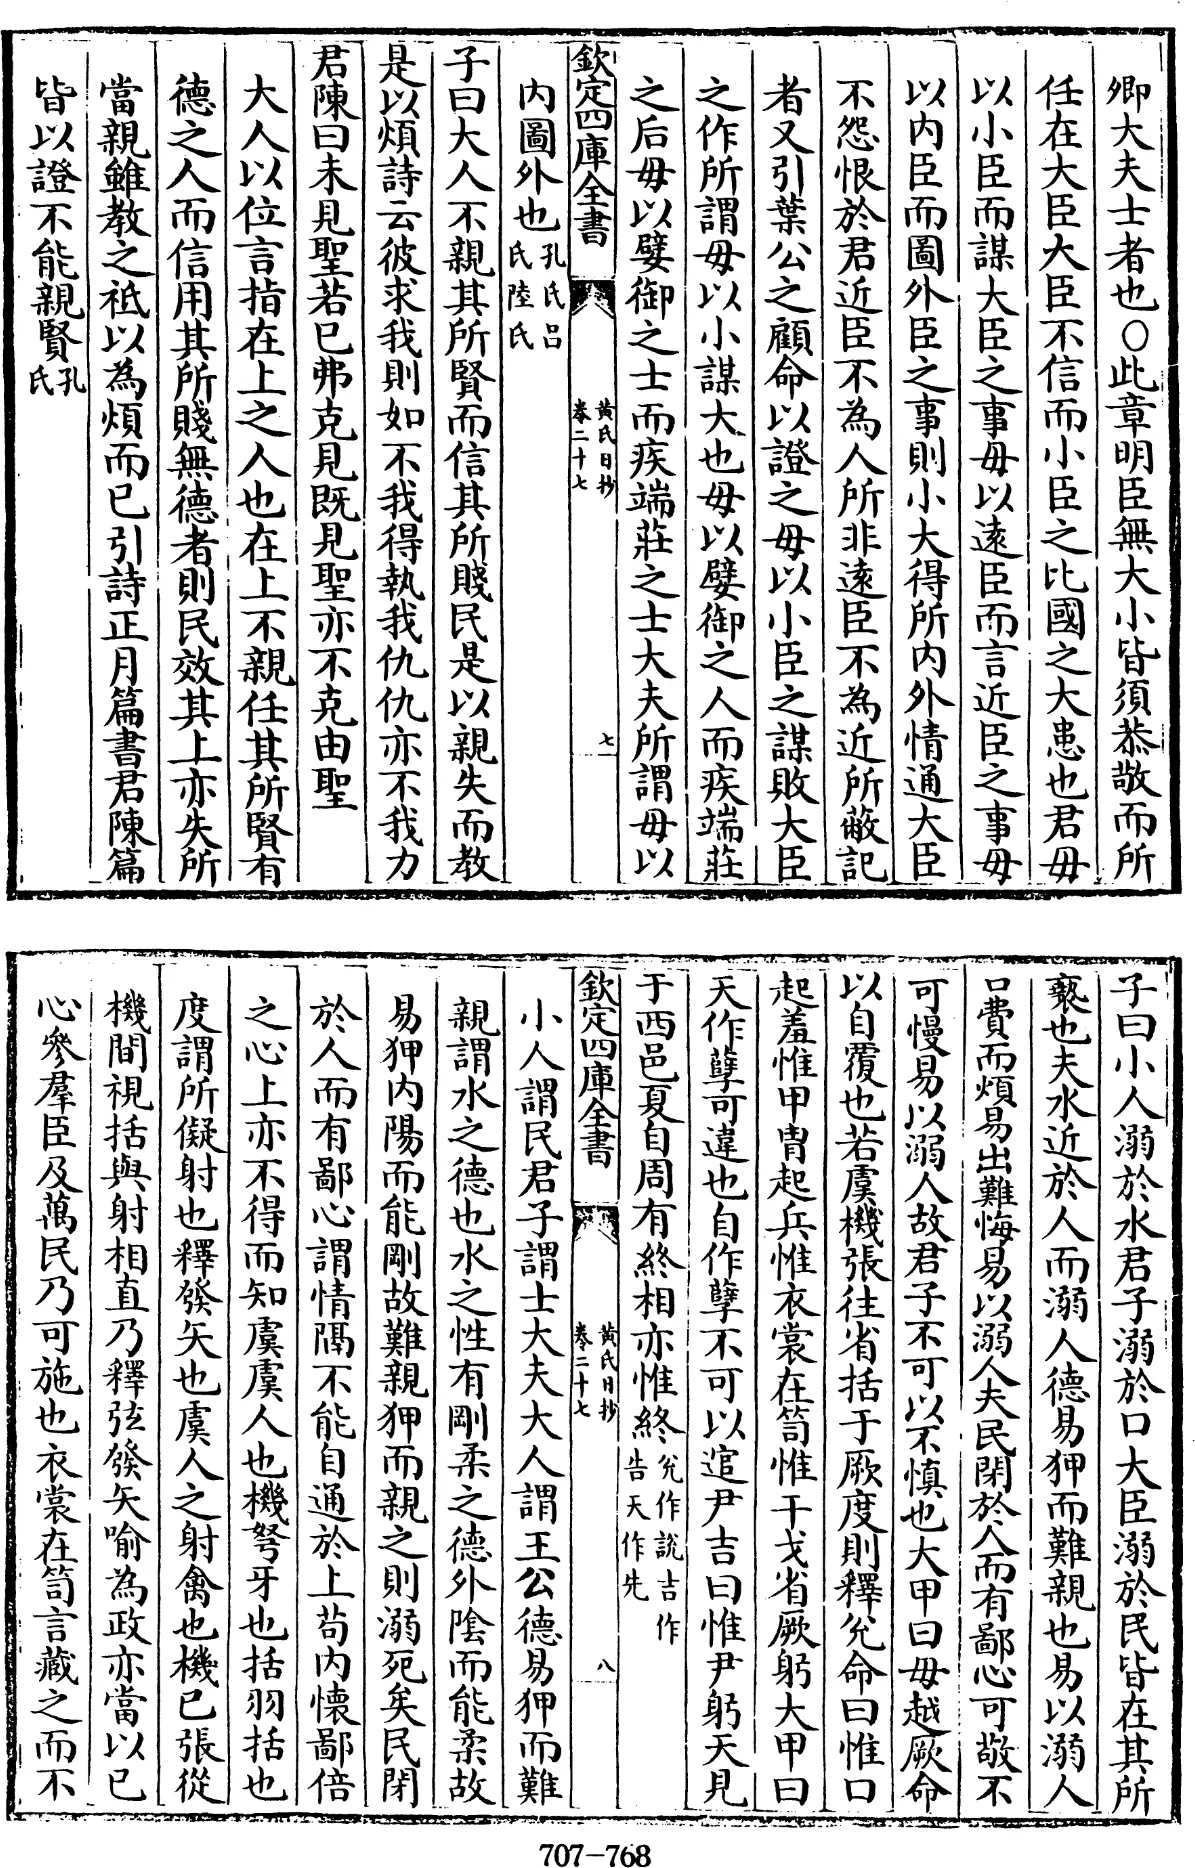 卿大夫士者也○此章明臣無大小皆須恭敬而所
任在大臣大臣不信而小臣之比國之大患也君毋
以小臣而謀大臣之事毋以逺臣而言近臣之事毋
以内臣而圖外臣之事則小大得所内外情通大臣
不怨恨於君近臣不為人所非逺臣不為近所蔽記
者又引葉公之顧命以證之毋以小臣之謀敗大臣
之作所謂毋以小謀大也毋以嬖御之人而疾端莊
之后毋以嬖御之士而疾端莊之士大夫所謂毋以
欽定四庫全書
黄氏日抄
卷二十七
七
内圖外也孔氏吕
氏陸氏
子曰大人不親其所賢而信其所賤民是以親失而教
是以煩詩云彼求我則如不我得執我仇仇亦不我力
君陳曰未見聖若已弗克見既見聖亦不克由聖
大人以位言指在上之人也在上不親任其所賢有
德之人而信用其所賤無德者則民效其上亦失所
當親雖教之祗以為煩而已引詩正月篇書君陳篇
皆以證不能親賢孔
氏
子曰小人溺於水君子溺於口大臣溺於民皆在其所
褻也夫水近於人而溺人德易狎而難親也易以溺人
口費而煩易出難悔易以溺人夫民閉於人而有鄙心可敬不
可慢易以溺人故君子不可以不慎也大甲曰毋越厥命
以自覆也若虞機張往省括于厥度則釋兊命曰惟口
起羞惟甲胄起兵惟衣裳在笥惟干戈省厥躬大甲曰
天作孽可違也自作孽不可以逭尹吉曰惟尹躬天見
于西邑夏自周有終相亦惟終兊作說吉作
告天作先
欽定四庫全書
黄氏日抄
卷二十七
八
小人謂民君子謂士大夫大人謂王公德易狎而難
親謂水之德也水之性有剛柔之德外隂而能柔故
易狎内陽而能剛故難親狎而親之則溺死矣民閉
於人而有鄙心謂情隔不能自通於上苟内懷鄙倍
之心上亦不得而知虞虞人也機弩牙也括羽括也
度謂所儗射也釋發矢也虞人之射禽也機已張從
機間視括與射相直乃釋弦發矢喻為政亦當以已
心參羣臣及萬民乃可施也衣裳在笥言藏之而不
707-768